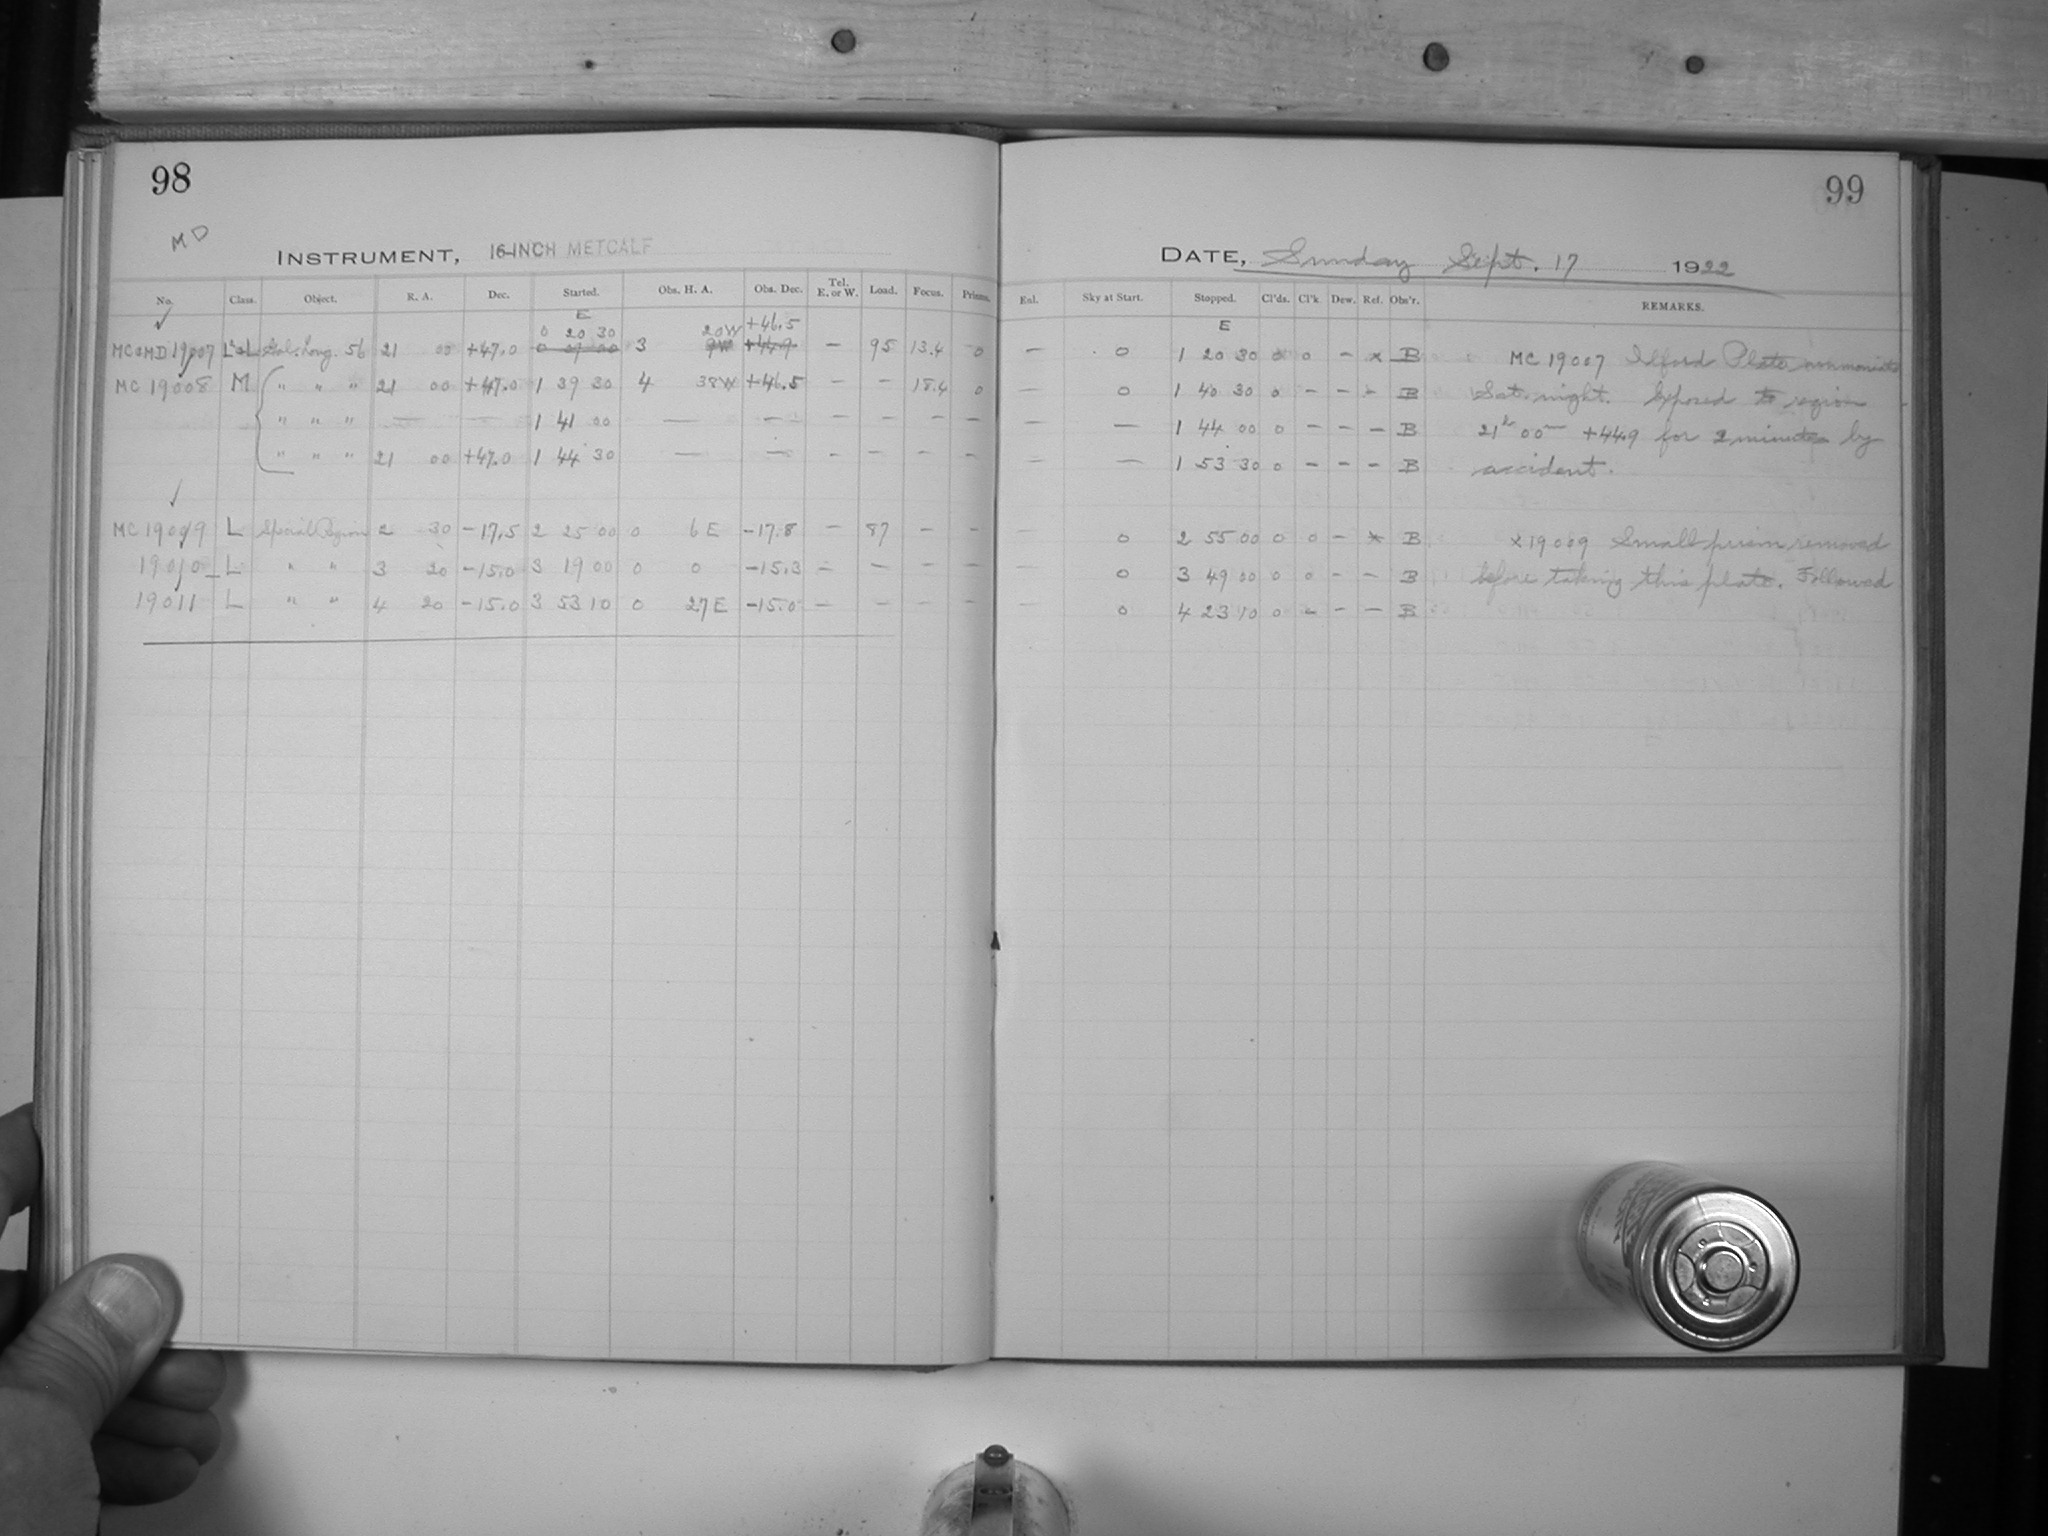 98
MD
INSTRUMENT, 16-INCH METCALF
No. Class. Object. R. A. Dec. Started. Obs. H. A. Obs. Dec. Tel. E. or W. Load. Focus. Prisms.
E
0 20 30 20W +46.5
MC & MD 19007 L & L Gal. Long. 56 21 00 +47.0 3 9W +44.9 — 95 13.4 0
MC 19008 M " " " 21 00 +47.0 1 39 30 4 38W +46.5 — — 18.4 0
" " " — — 1 41 00 — — — — — —
" " " 21 00 +47.0 1 44 30 — — — — — —
MC 19009 L Special Region 2 30 -17.5 2 25 00 0 6 E -17.8 — 87 — —
19010 L " " 3 20 -15.0 3 19 00 0 0 -15.3 — — — —
19011 L " " 4 20 -15.0 3 53 10 0 27 E -15.0 — — — —
99
DATE, Sunday Sept. 17 1922
Enl. Sky at Start. Stopped. Cl'ds. Cl'k. Dew. Ref. Obs'r. REMARKS.
E
— 0 1 20 30 0 0 — x B MC 19007 Ilford Plate
— 0 1 40 30 0 — — — B Sat. night. Exposed to region
— — 1 44 00 0 — — — B 21h 00m +44.9 for 2 minutes by
— — 1 53 30 0 — — — B accident.
— 0 2 55 00 0 0 — x B x 19009 Small prism removed
— 0 3 49 00 0 0 — — B before taking this plate. Followed
— 0 4 23 10 0 — — — B